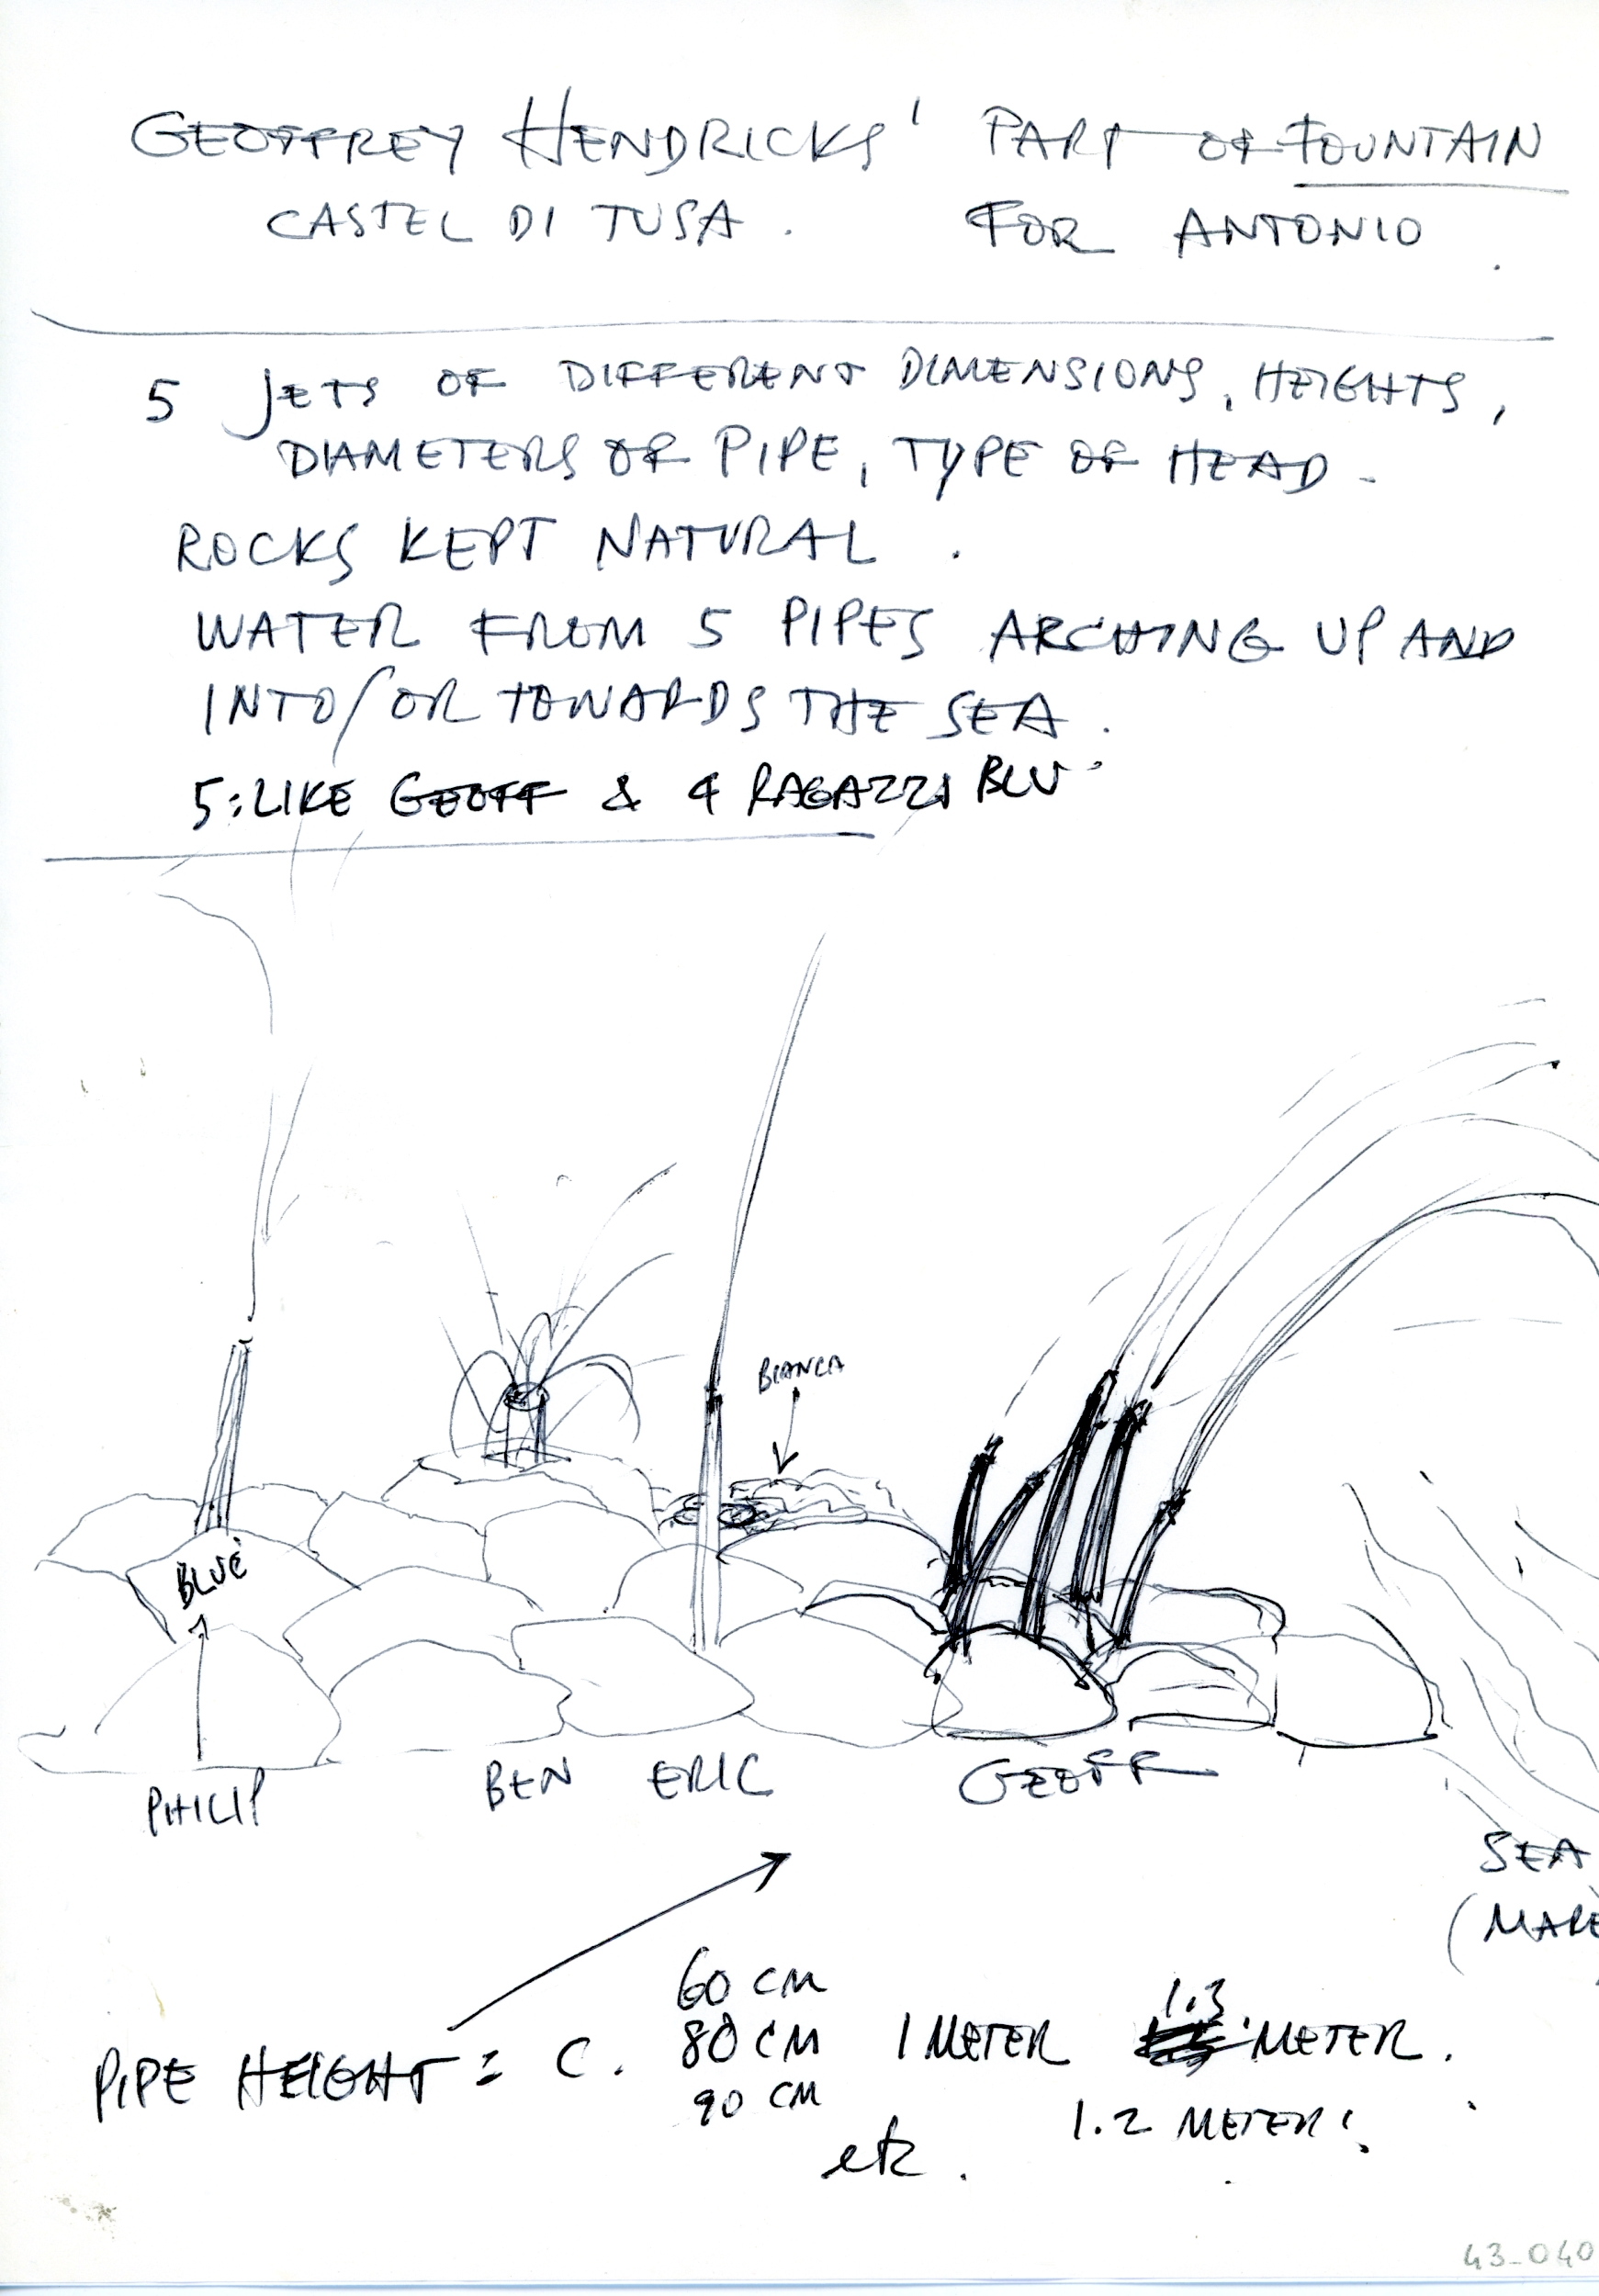 GEOFFREY HENDRICKS' PART OF FOUNTAIN
CASTEL DI TUSA. FOR ANTONIO.
5 JETS OF DIFFERENT DIMENSIONS, HEIGHTS,
DIAMETERS OF PIPE, TYPE OF HEAD -
ROCKS KEPT NATURAL.
WATER FROM 5 PIPES ARCHING UP AND
INTO/OR TOWARDS THE SEA.
5: LIKE GEOFF & 4 RAGAZZI BLU
BIANCA
BLUE
PHILIP BEN ERIC GEOFF
SEA
(MARE
60 CM
1.3
PIPE HEIGHT = C. 80 CM 1 METER METER.
90 CM
1.2 METER!
etc.
43-040